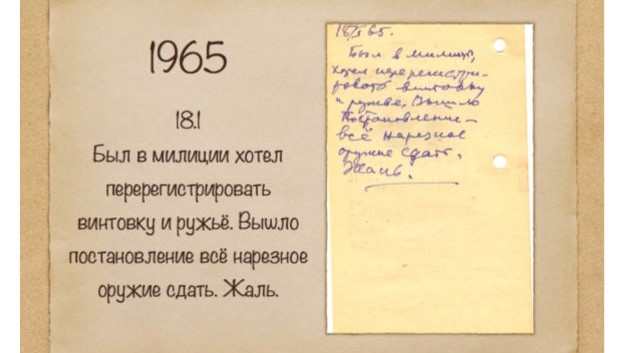 1965
18.1
Был в милиции хотел
перерегистрировать
винтовку и ружьё. Вышло
постановление всё нарезное
оружие сдать. Жаль.
18/I 65.
Был в милиции,
хотел перерегистри-
ровать винтовку
и ружье. Вышло
Постановление –
всё нарезное
оружие сдать.
Жаль.